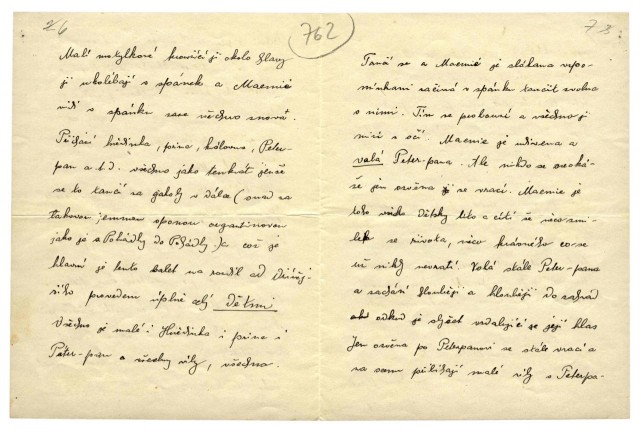 26
762
Malí motýlkové kroužejí okolo hlavy
ji ukolébají v spánek a Maemie
vidí v spánku zase všechno znova.
Přichází hvězdinka, princ, královna, Peter-
pan a.t.d. všechno jako tenkrát jenže
se to tančí za galoly v dálce (snad za
takovou jemnou oponou organtinovou
jako je s Pohádky do Pohádky). Co je
hlavní je tento balet na rozdíl od
provedem úplně celý dětmi
Všechno je malé i Hvězdinka i princ i
Peter-pan a všechny víly, všechno.
73
Tančí se a Maemie je zlákána vzpo-
mínkami začíná v spánku tančit zvolna
s nimi. Tím se probouzí a všechno jí
mizí s očí. Maemie je udivena a
volá Peter-pana. Ale nikdo se neoká-
že jen ozvěna se vrací. Maemie je
toho všeho dětsky líto a cítí že něco
z života, něco krásného co se
už nikdy nevrátí. Volá stále Peter-pana
a zachází hlouběji a hlouběji do zahrad
odkud je slyšet vzdalující se její hlas
Jen ozvěna po Peterpanovi se stále vrací a
na scénu přibíhají malé víly s Peterpa-